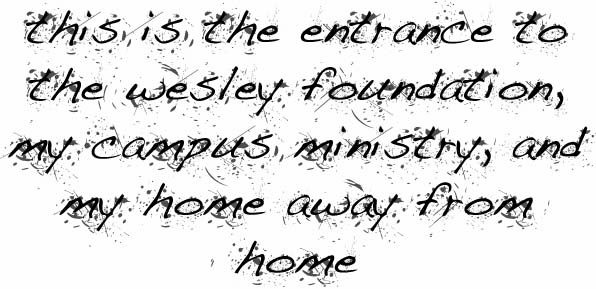 this is the entrance to
the wesley foundation,
my campus ministry, and
my home away from
home